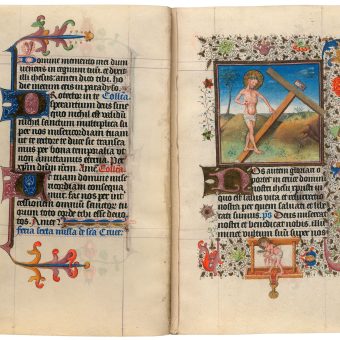 Domine memento mei dum
veneris in regnum tuu. et dixit
illi ihesus: amen dico tibi. ho
die mecum eris in paradyso.
Protector in te Collecta
sperantium deus sine
quo nichil est validu
nichil sanctum multiplica su
per nos misericordiam tuam
ut te rectore te duce sic transea
mus per bona temporalia ut
non amittamus eterna. Per
xpm dnm
tuam domine mise
ricordiam consequa
mur. fac nos tibi toto corde
tibi esse devo
tos. Amen
feria sexta missa de sca Cruce.
Nos autem gloriari o
portet in cruce domini
nostri ihesu xpristi in
quo est salus vita et resurrectio
nostra per quem salvati et libe
rati sumus. ps Deus misereat
nostri et benedicat nobis. illu
minet vultum suu super nos